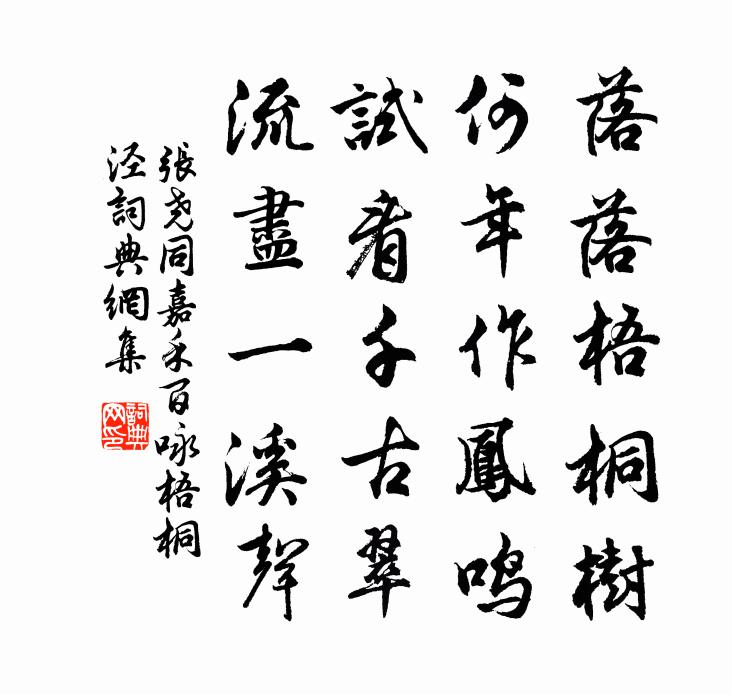 落落梧桐樹
何年作鳳鳴
試看千古翠
流盡一溪聲
張堯同嘉禾百咏梧桐
涇詞典網集
詞典網印